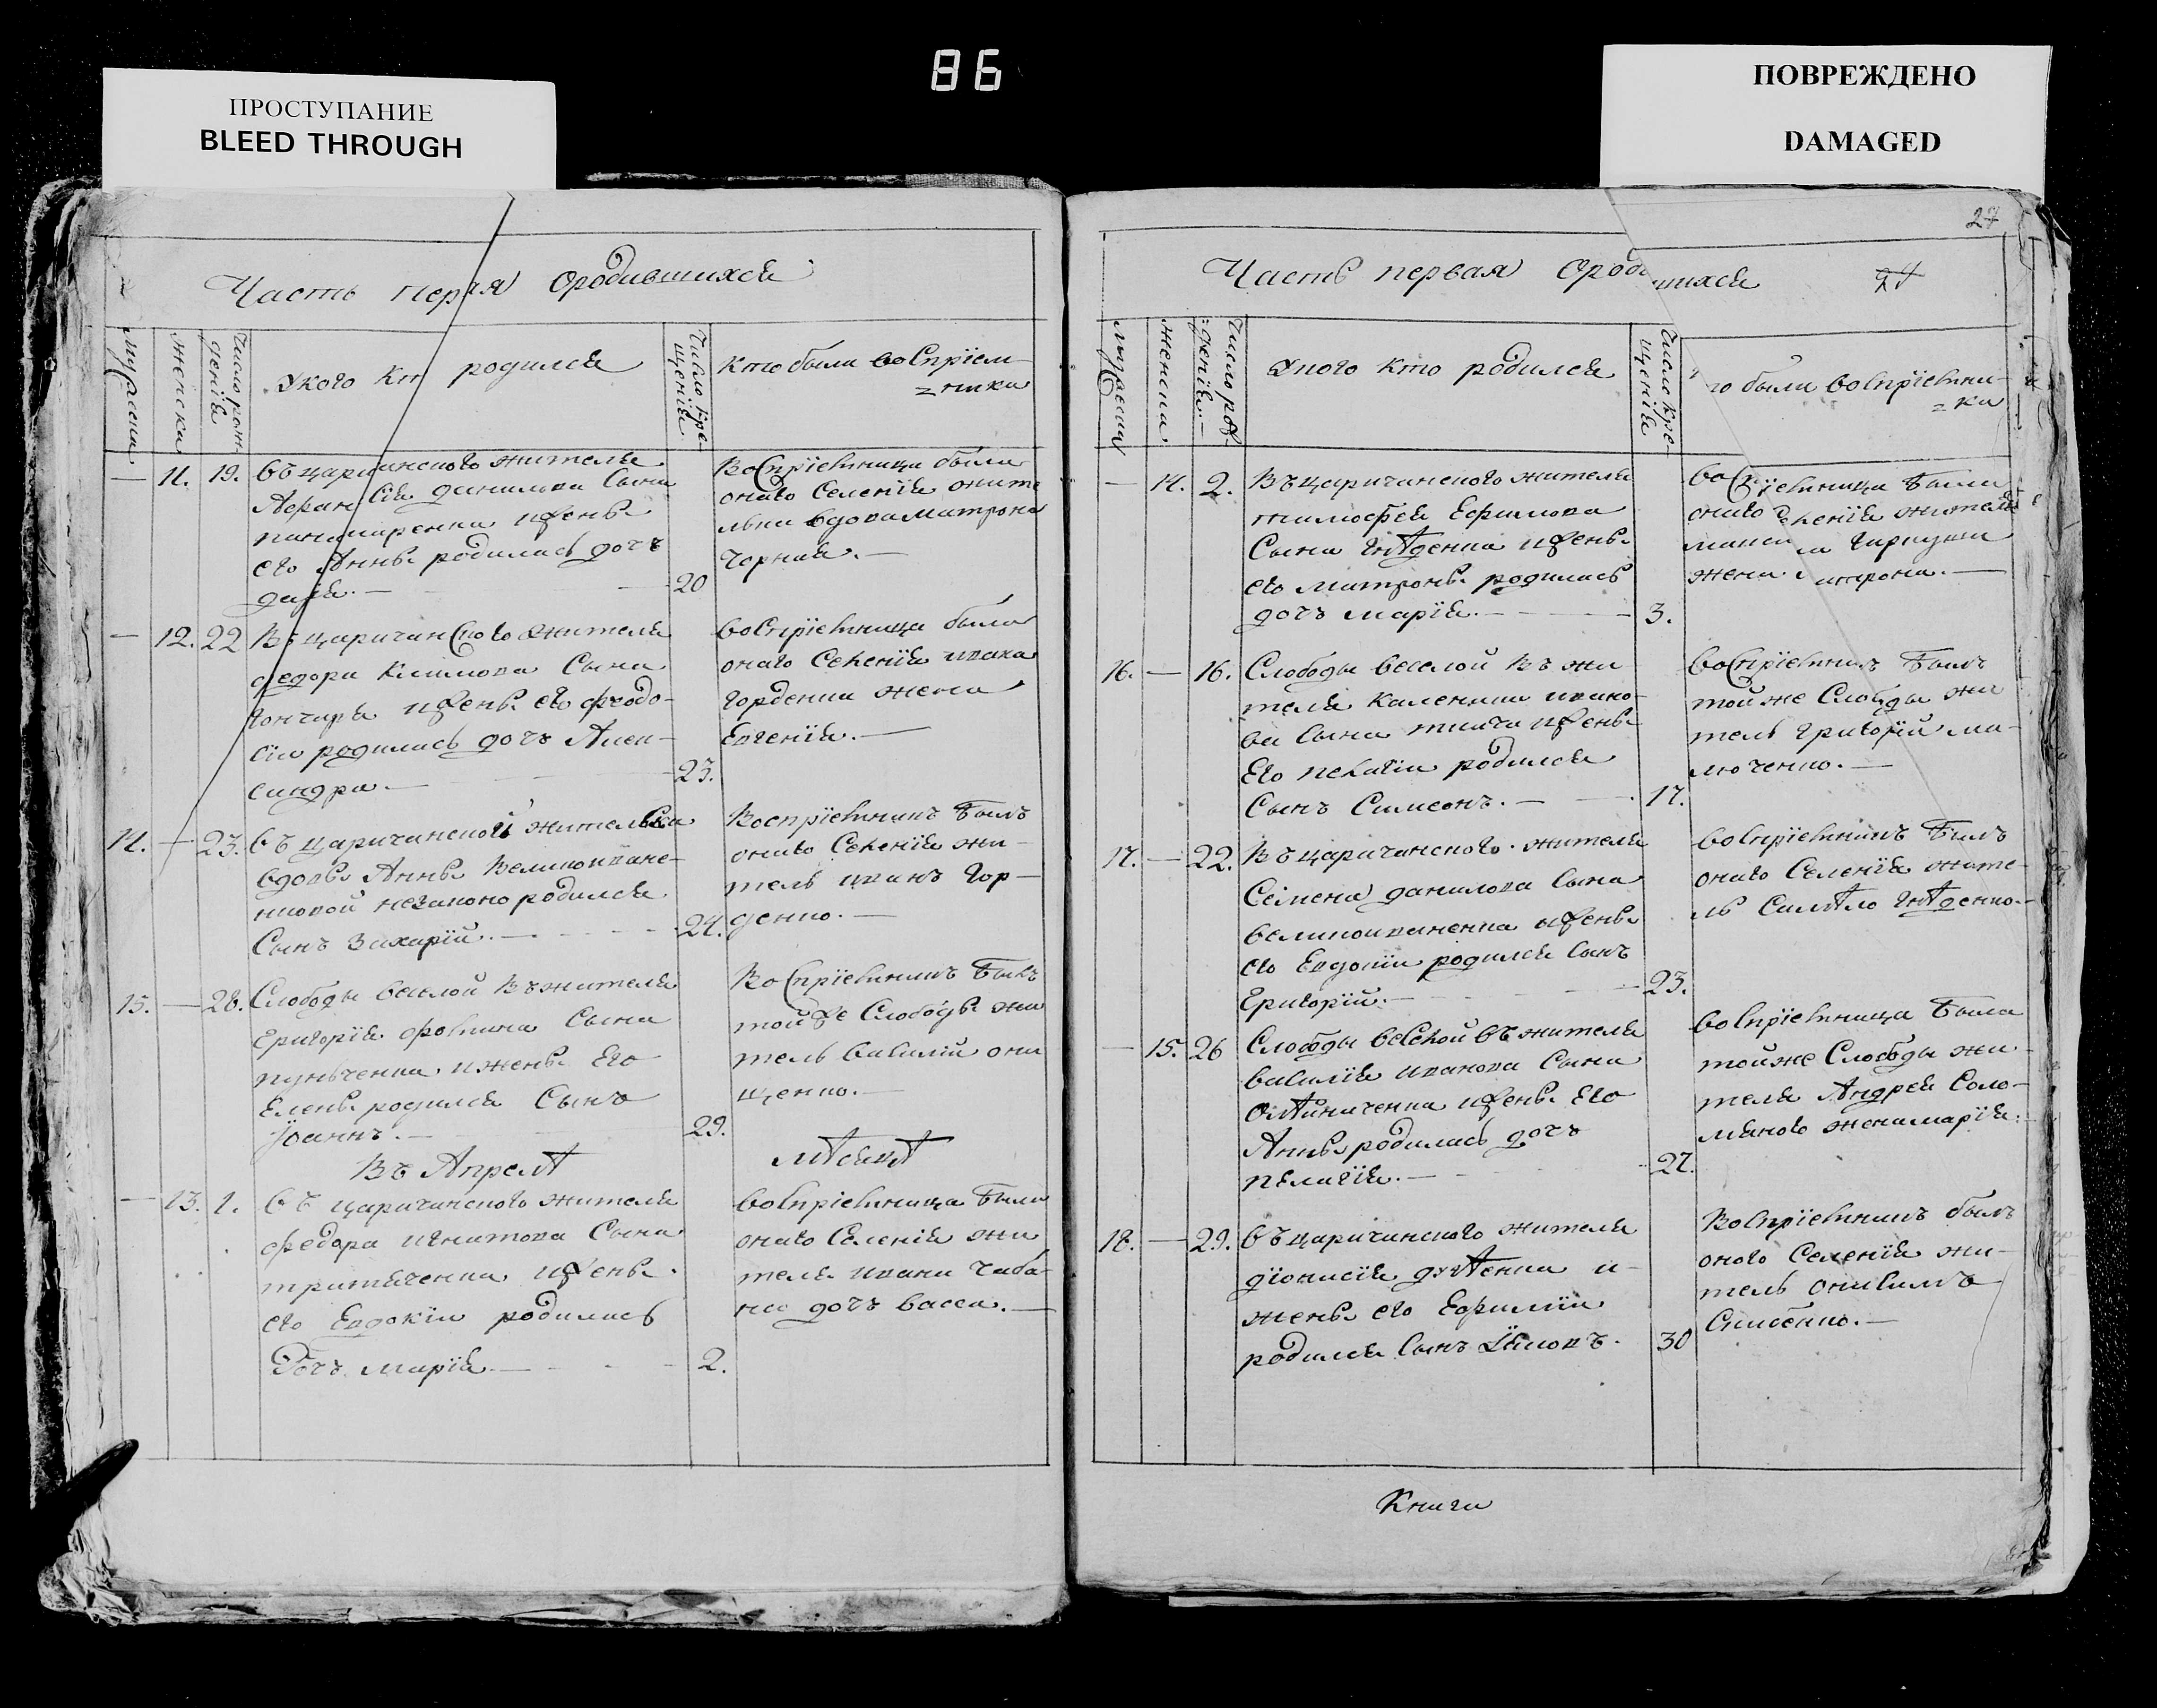 86
ПРОСТУПАНИЕ
BLEED THROUGH
ПОВРЕЖДЕНО
DAMAGED
Часть первая ородившихся
мужеска
женска
число рождения
Укого кто родился
число крещенія
кто были воспріем-
=ники
— 11. 19. въ царичанского жителя
данилова сына
пономаренка ижены
его Анны родилась дочь
20
воспріемница была
онаго селенія жите
льки вдова матрона
чорная. —
— 12. 22 въ царичанского жителя
федора климова сына
гончара ижены его феодо-
сіи родилась дочь Алек-
сандра. — 23.
воспріемница была
онаго селенія ивана
горденка жена
Евгенія. —
14. — 23. въ царичанской жительки
вдовы Анны великоиване-
нковой незаконо родился
сынъ захарій. — 24.
воспріемникъ былъ
онаго селенія жи-
тель иванъ гор-
денко. —
15. — 28. Слободы веселой въ жителя
григорія фомина сына
ижены его
Елены родился сынъ
Іоаннъ. — 29.
воспріемникъ былъ
той же слободы жи
тель василій они
щенко. —
Въ Апрелѣ мѣсяцѣ
— 13. 1. въ царичанского жителя
федора игнатова сына
ижены
его Евдокіи родилась
дочь марія — 2.
воспріемница была
онаго селенія жи
теля ивана чаба-
на дочь васса. —
27
24
Часть первая ородившихся
мужеска
женска
число рождения. —
Укого кто родился
число крещенія
кто были воспріемни-
=ки
— 14. 2. въ царичанского жителя
тимофея Ефимова
сына гнѣденка ижены
его матроны родилась
дочь марія. — 3.
воспріемница была
онаго селенія жителя
жена матрона. —
16. — 16. Слободы веселой въ жи
теля каленика ивано-
ва сына ткача ижены
Его пелагіи родился
сынъ симеонъ. — 17.
воспріемникъ былъ
той же слободы жи
тель григорій ма-
люченко. —
17. — 22. въ царичанского жителя
семена данилова сына
великоиваненка ижены
его Евдокіи родился сынъ
григорій. — 23.
воспріемникъ былъ
онаго селенія жите-
ль самѣло гнѣденко. —
— 15. 26 Слободы веселой въ жителя
василія иванова сына
олѣйниченка ижены Его
Анны родилась дочь
пелагія. — 27.
воспріемница была
той же слободы жи
теля Андрея соло-
жена марія.
18. — 29. въ царичанского жителя
діонисія и
жены его Ефиміи
родился сынъ Іаковъ. 30
воспріемникъ былъ
оного селенія жи-
тель онисимъ
Книги